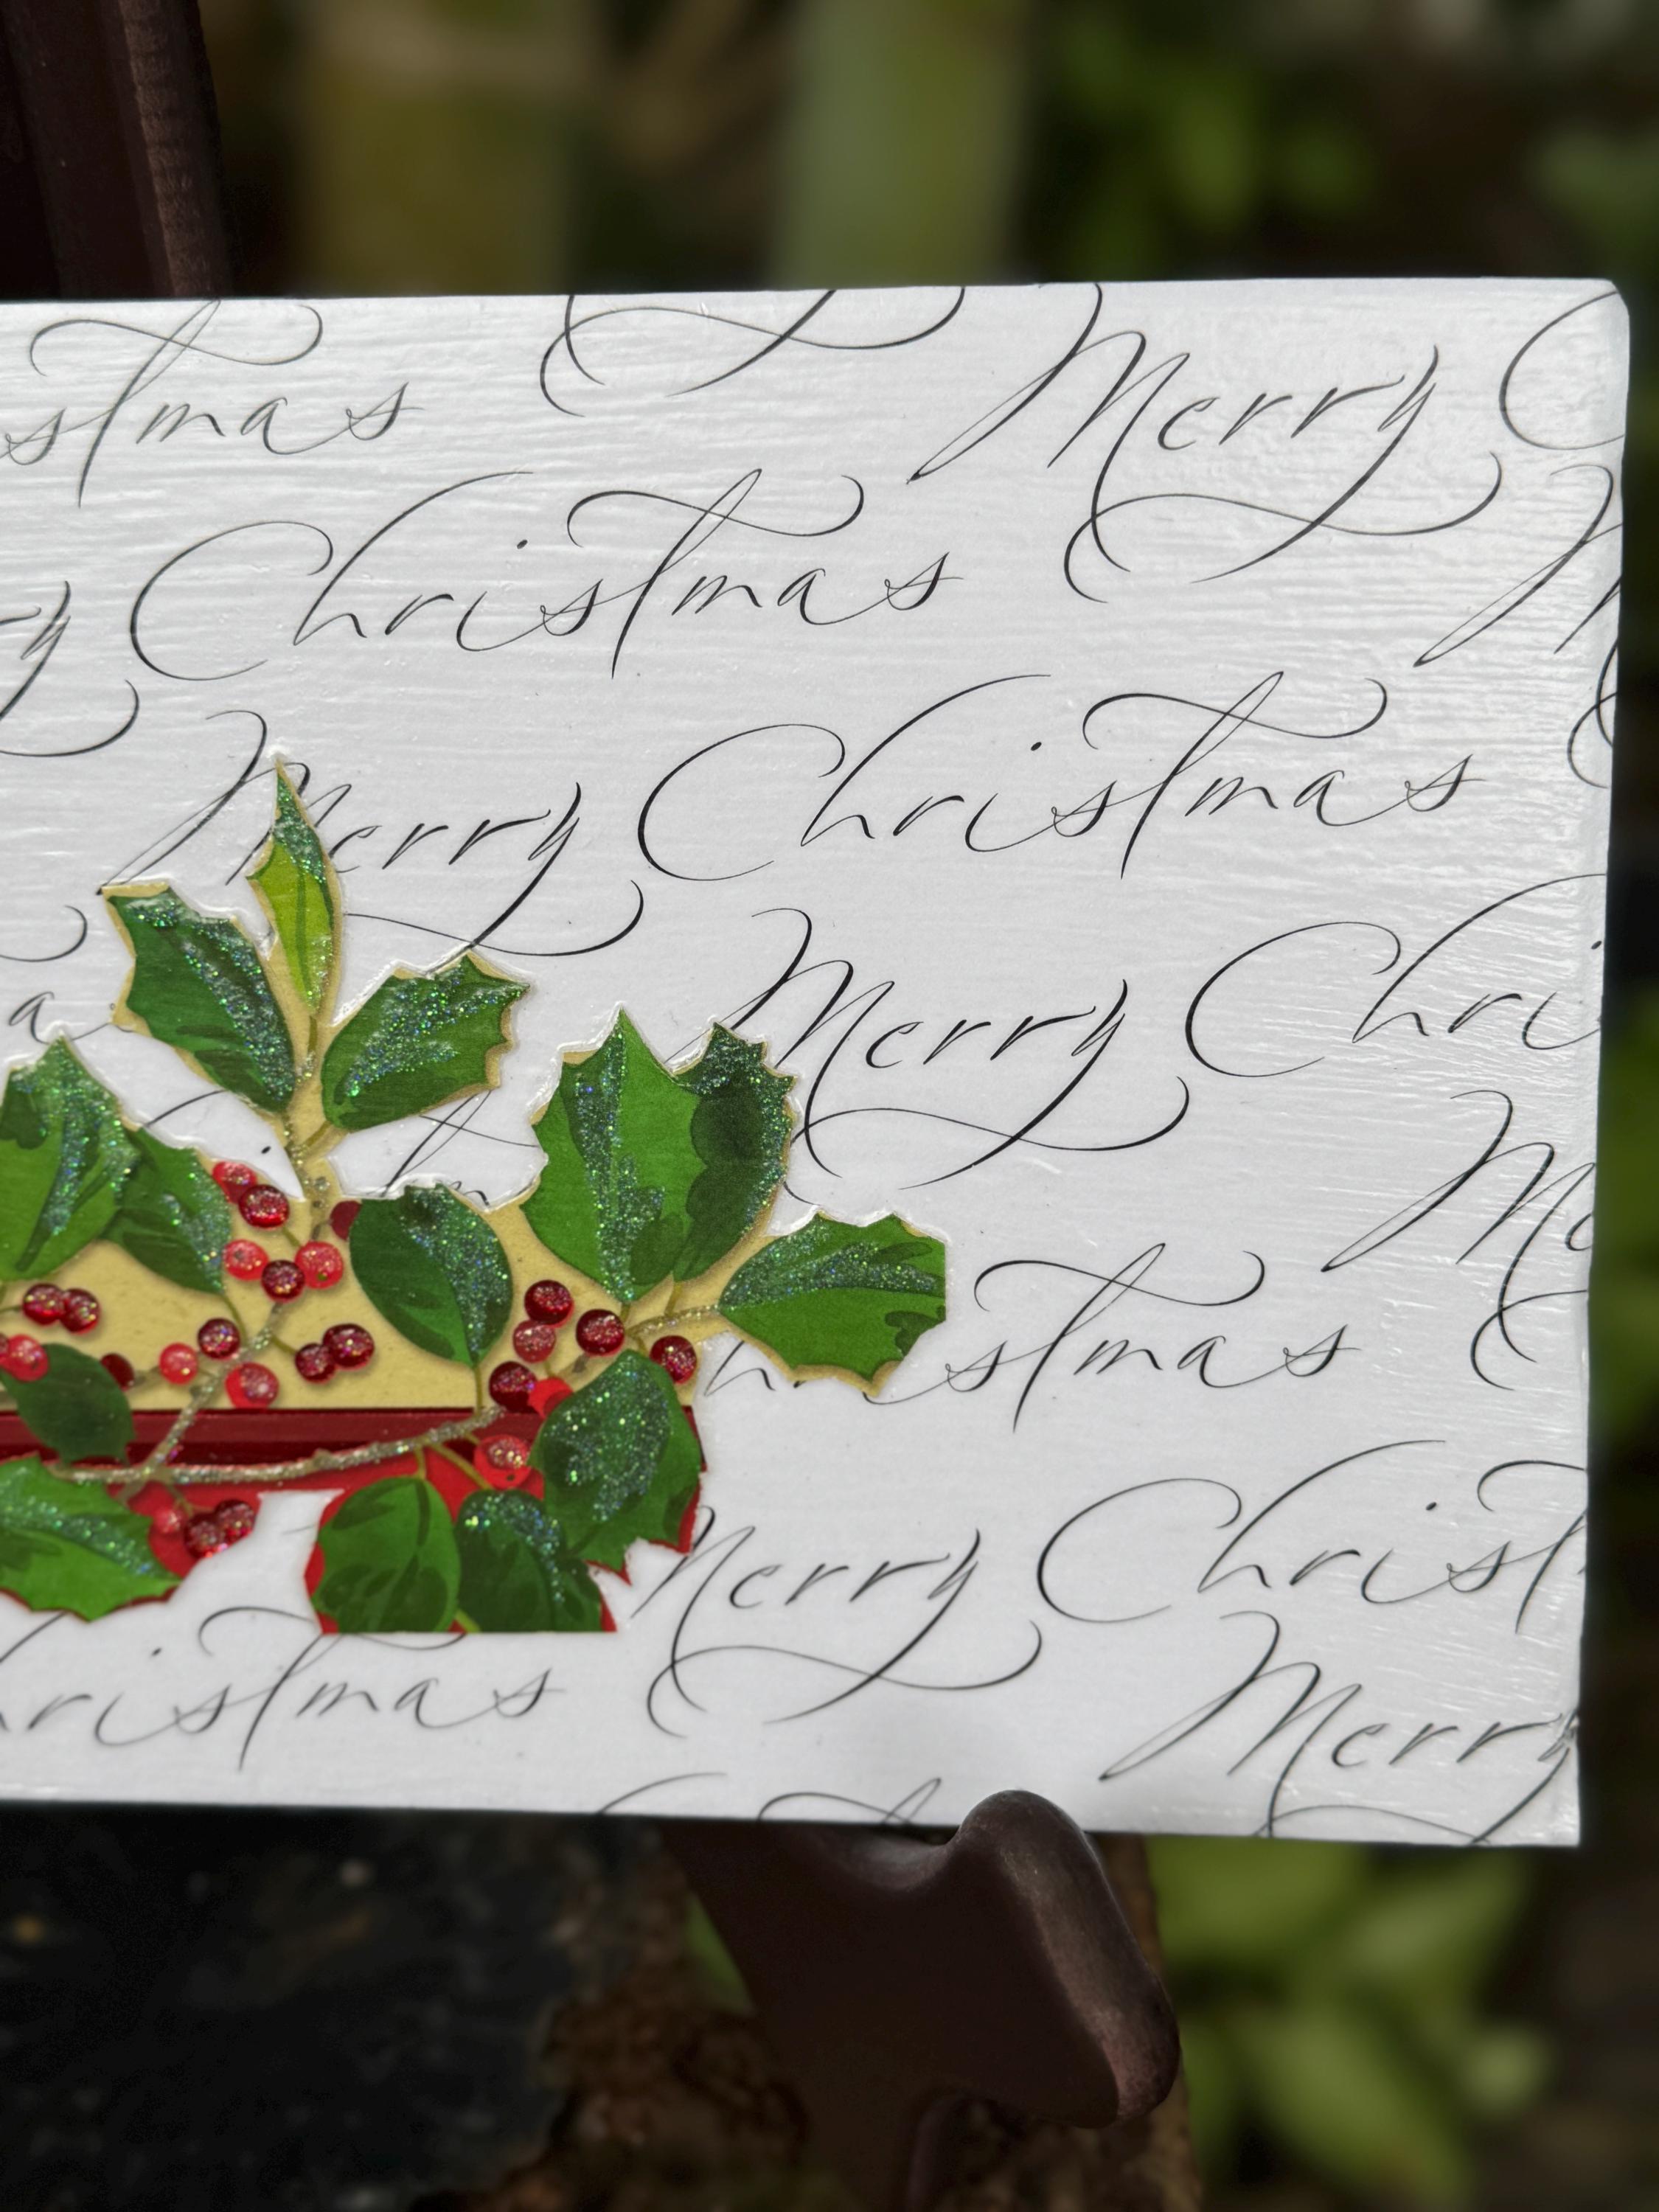 stmas Merry C
ry Christmas M
Merry Christmas
a Merry Chri
hristmas Me
Merry Christ
hristmas Merry